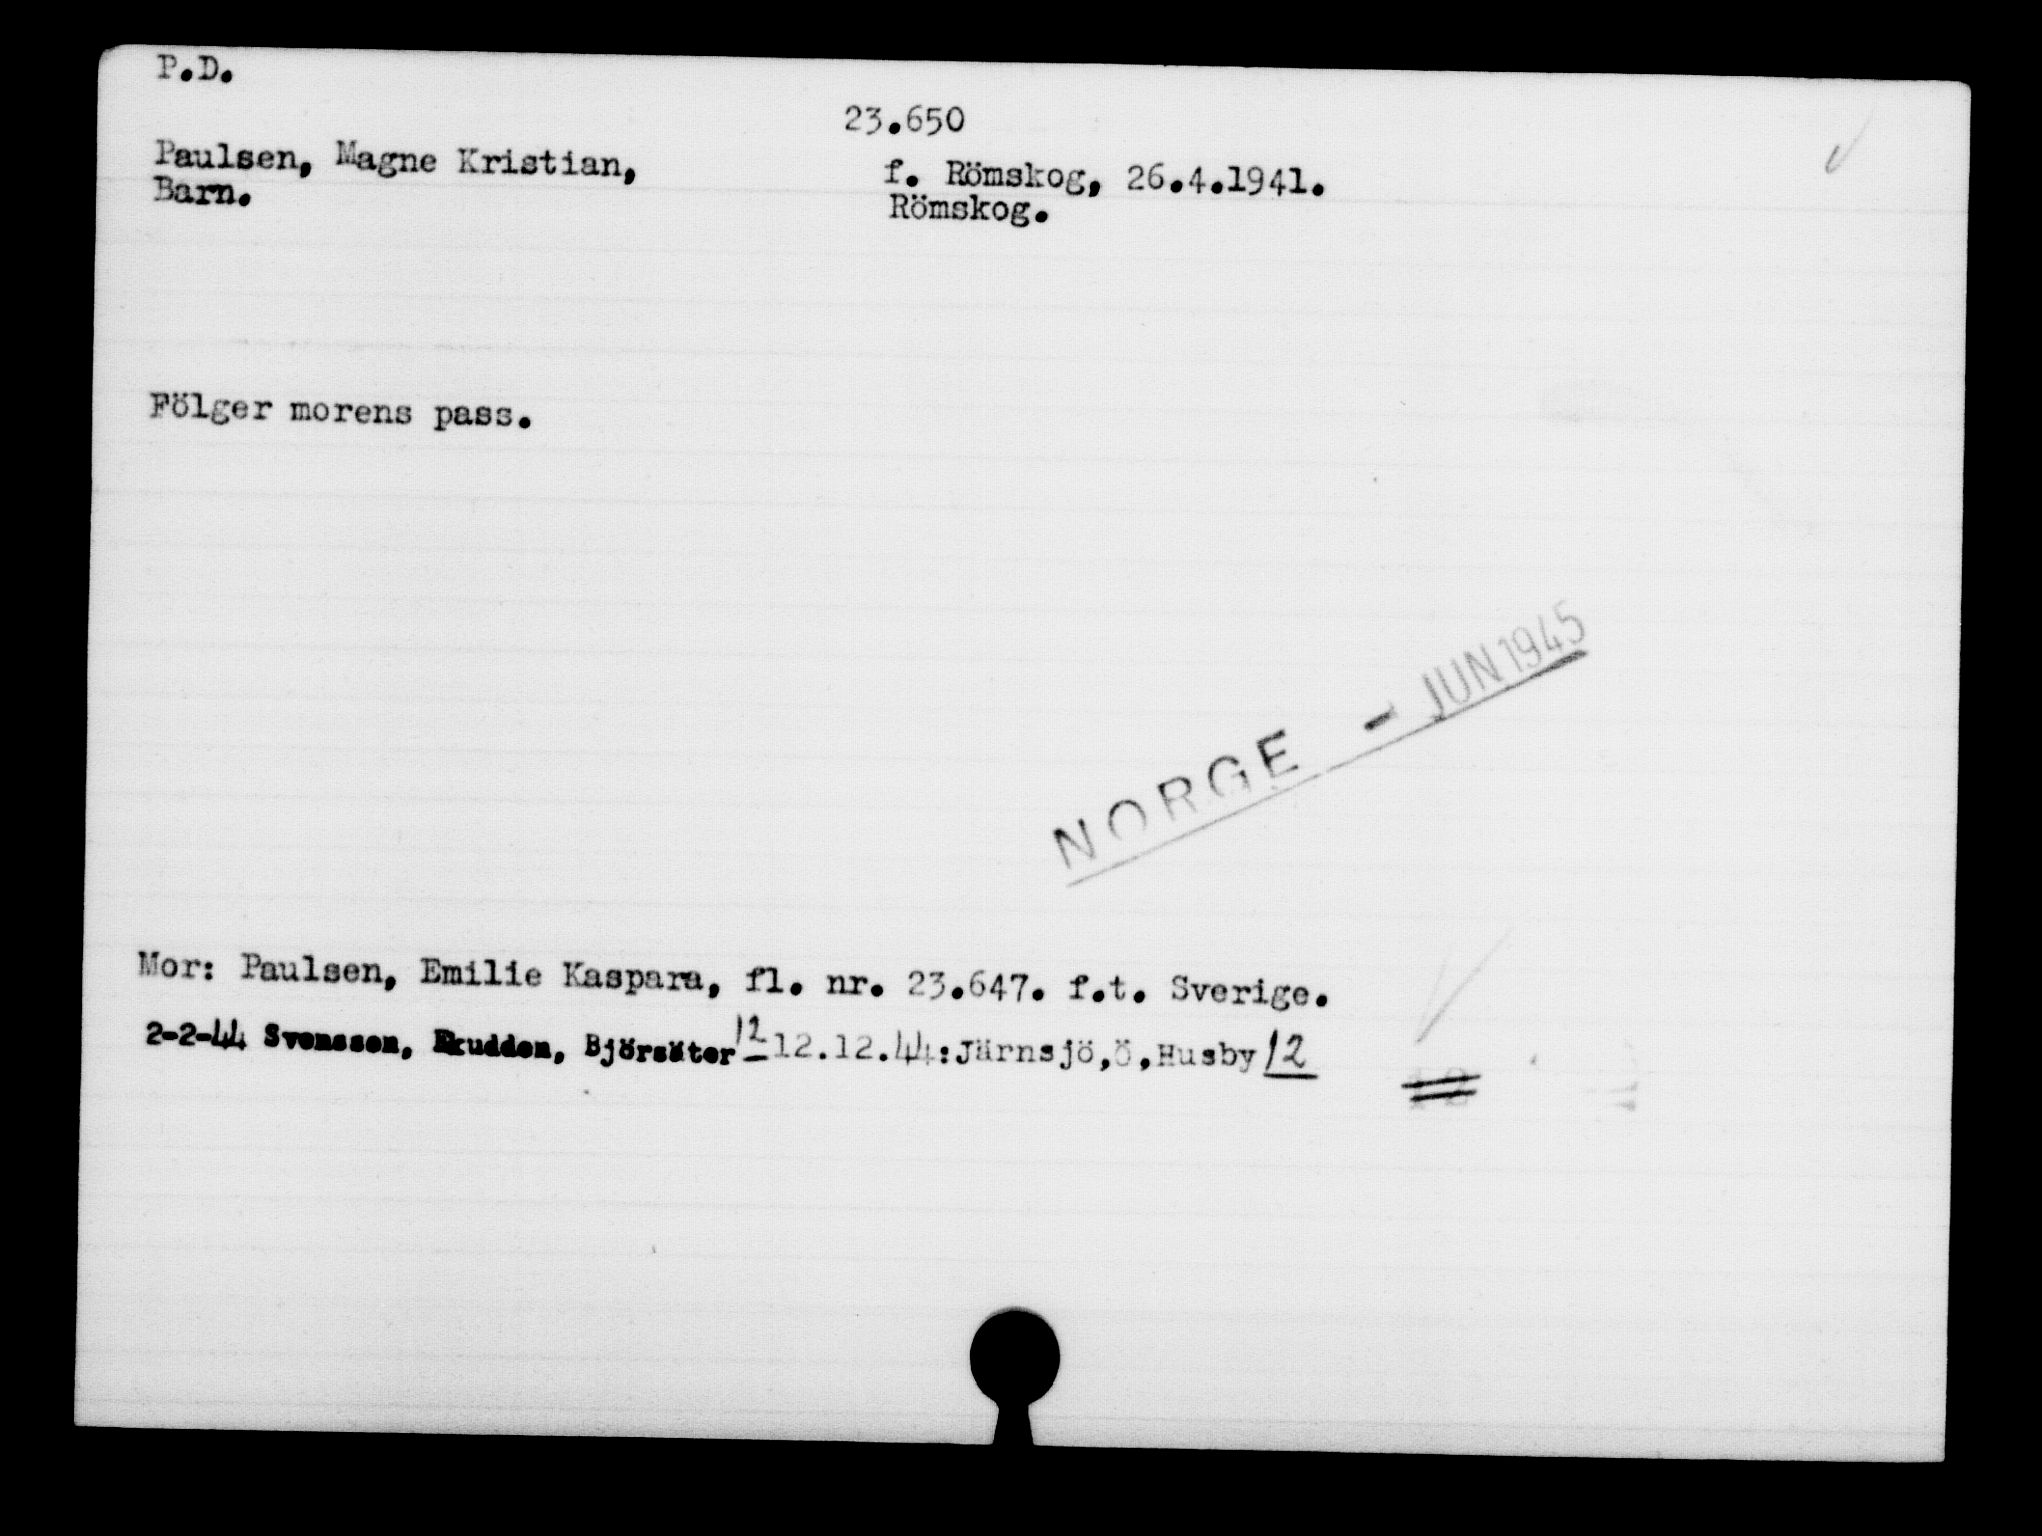 P.D.
23.650
Paulsen, Magne Kristian,
f. Römskog, 26.4.1941.
Barn.
Römskog.
Fölger morens pass.
NORGE - JUN 1945
Mor: Paulsen, Emilie Kaspara, fl. nr. 23.647. f.t. Sverige.
2-2-44 Svenssen, Björsäter 12 12.12.44:Järnsjö,Ö,Husby 12
12